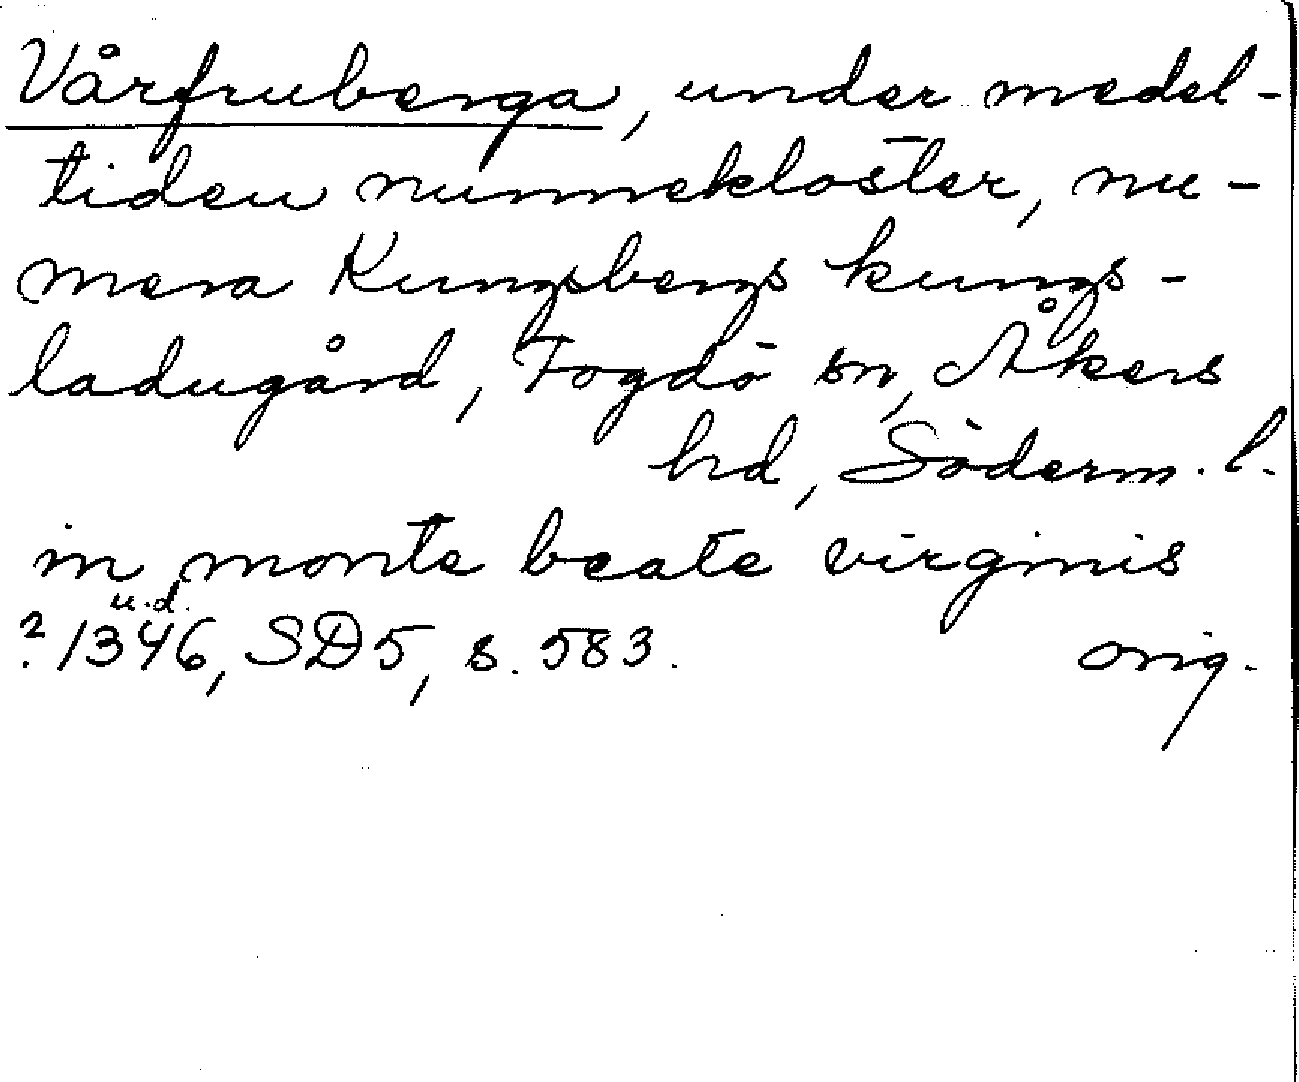 Vårfruberga, under medel-
tiden nunnekloster, nu-
mera Kungsbergs kungs-
ladugård, Fogdö sn, Åkers
hd, Söderm. l.
in monte beate virginis
u.d.
? 1346, SD 5, s. 583. orig.